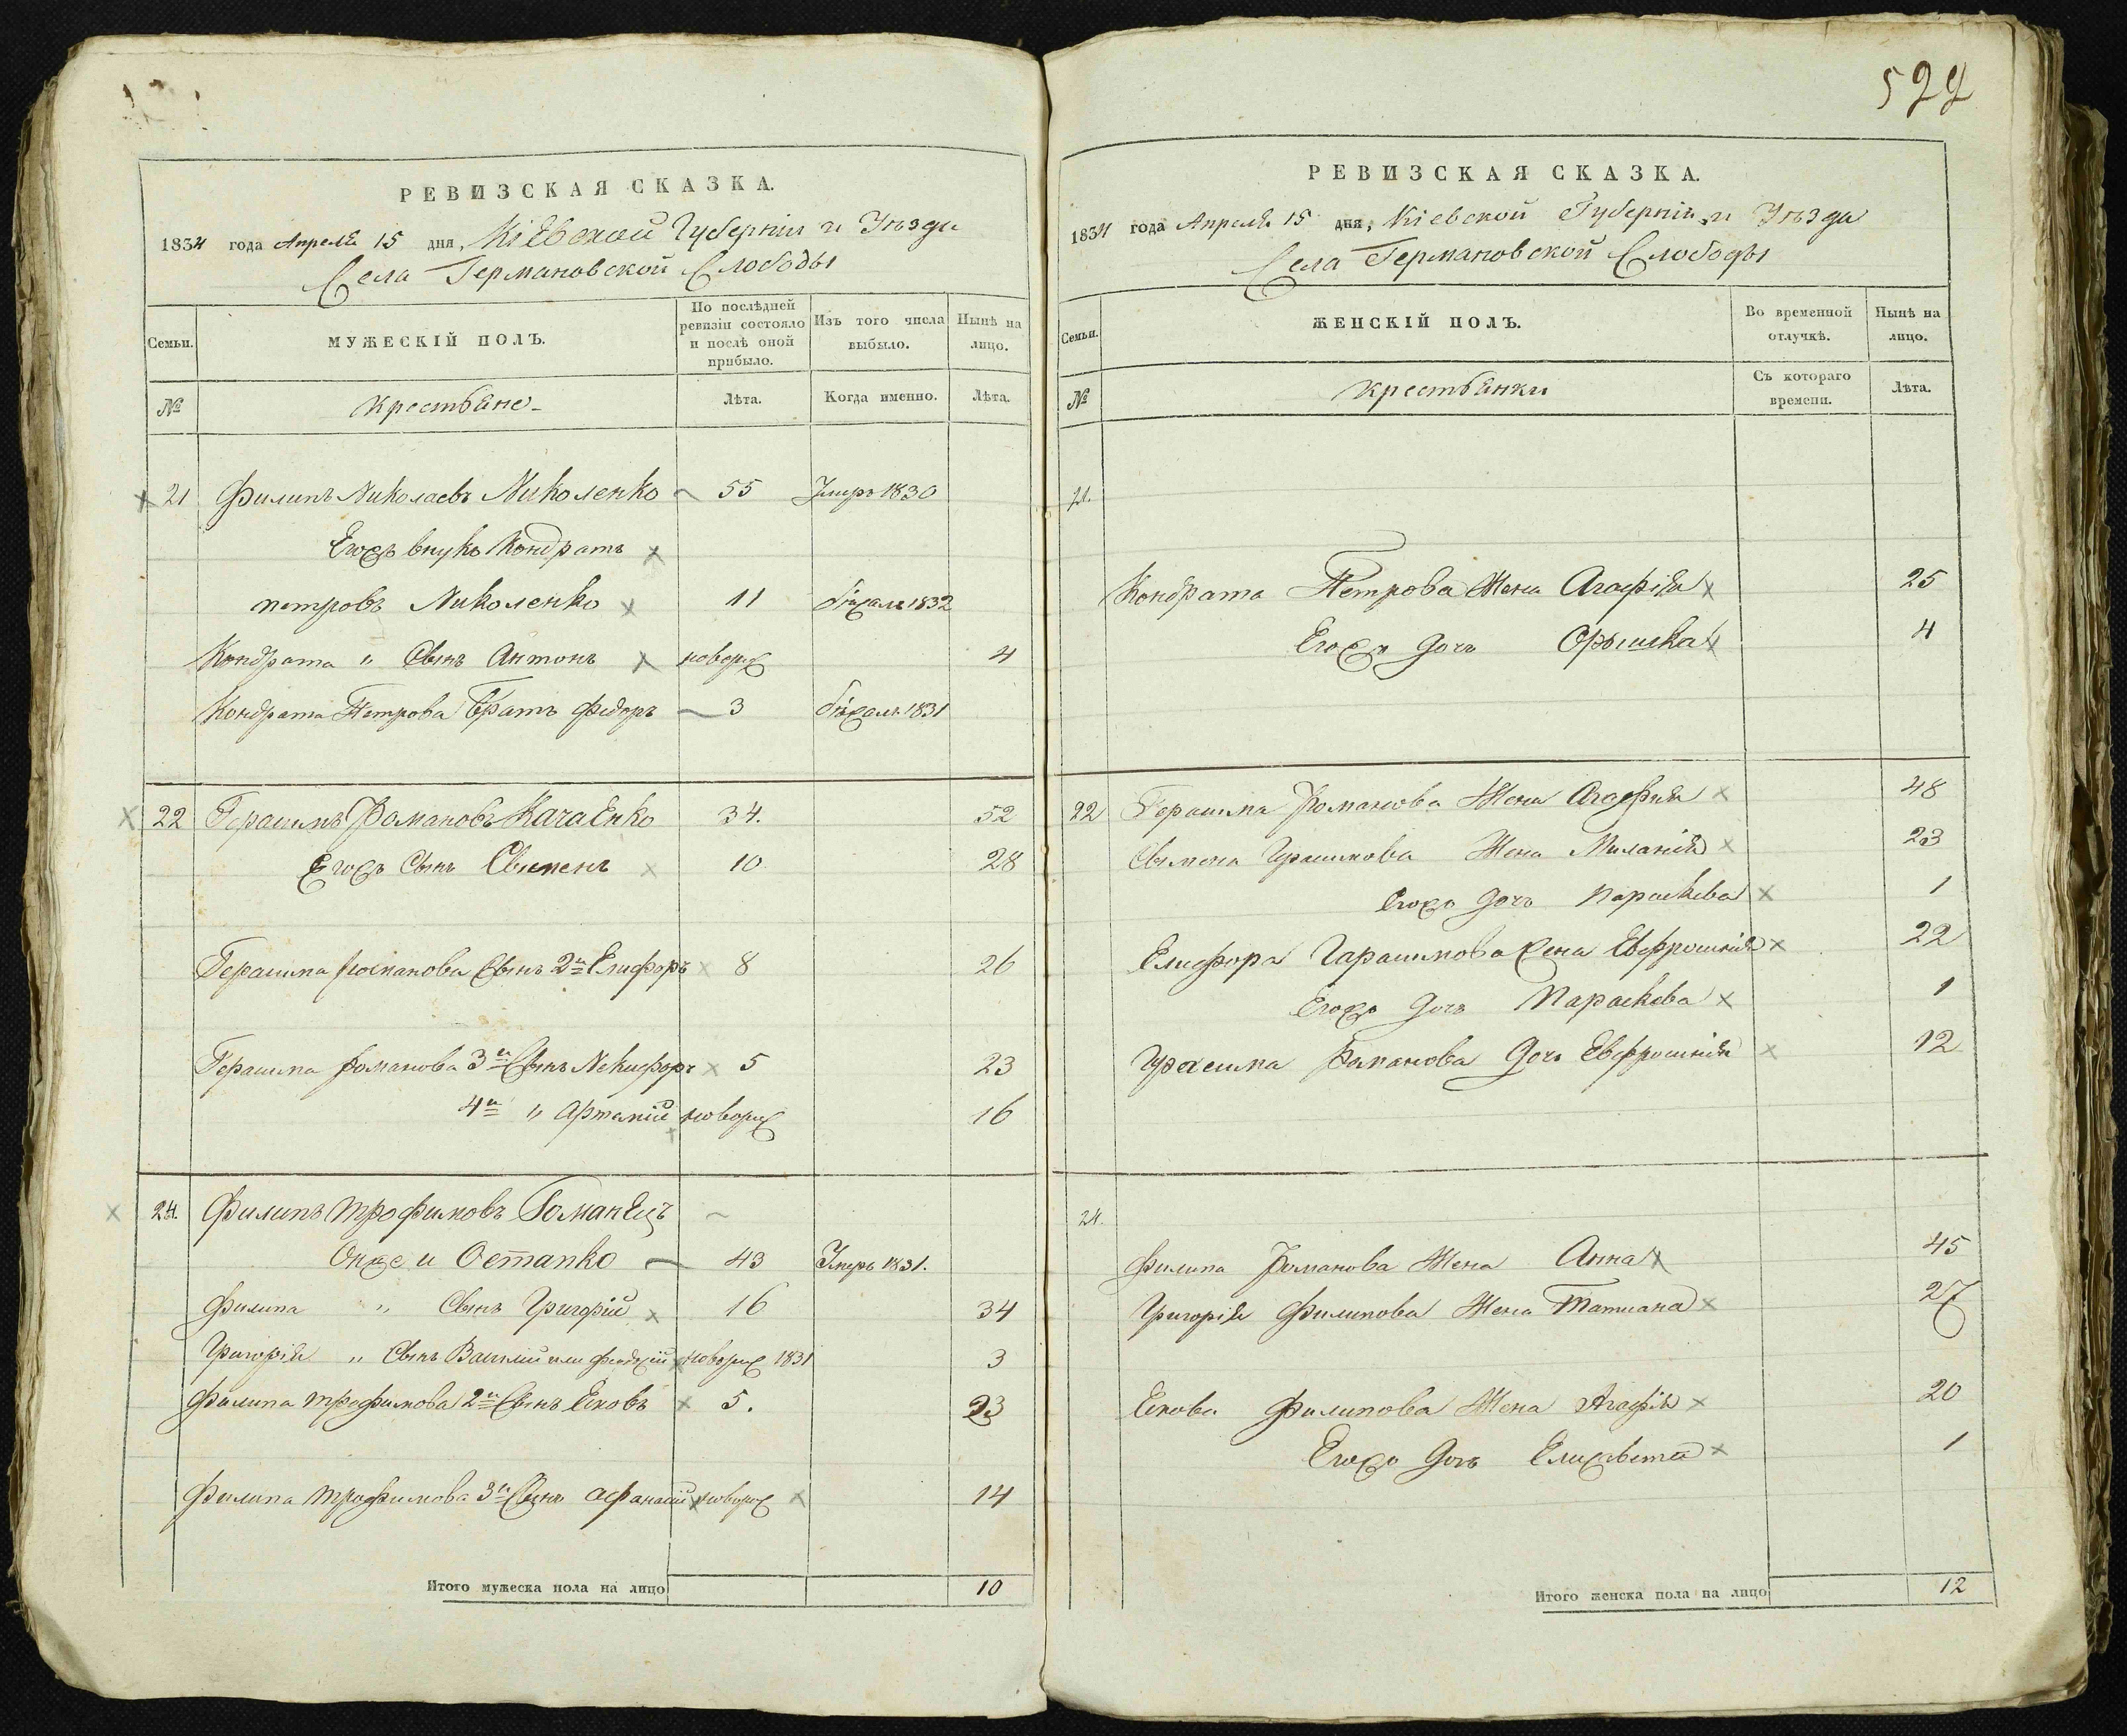 РЕВИЗСКАЯ СКАЗКА.
1834 года Апреля 15 дня, Кіевской Губерніи и Уѣзда
Села Германовской Слободы
Семьи.
МУЖЕСКІЙ ПОЛЪ.
По послѣдней ревизіи состояло и послѣ оной прибыло.
Изъ того числа выбыло.
Нынѣ на лицо.
№
крестьяне
Лѣта.
Когда именно.
Лѣта.
21 Филипъ Николаевъ Николенко 55 Умеръ 1830
Егожъ внукъ Кондратъ
петровъ Николенко 11 бѣжалъ 1832
Кондрата " Сынъ Антонъ новорож 4
Кондрата Петрова Братъ Федоръ 3 бѣжалъ 1831
22 Герасимъ Романовъ Качаенко 34. 52
Егожъ Сынъ Сыменъ 10 28
Герасима Романова Сынъ 2й Елифоръ 8 26
Герасима Романова 3й Сынъ Некифоръ 5 23
4й " Артемій новорож 16
24. Филипъ Трофимовъ Романецъ
Онже и Остапко 43 Умеръ 1831.
Филипа " Сынъ Григорій 16 34
Григорія " Сынъ Василій или новорож 1831 3
Филипа трофимова 2й Сынъ Яковъ 5. 23
Филипа Трофимова 3й Сынъ афанасій новорож 14
Итого мужеска пола на лицо 10
522
РЕВИЗСКАЯ СКАЗКА.
1834 года Апреля 15 дня, Кіевской Губерніи и Уѣзда
Села Германовской Слободы
Семьи.
ЖЕНСКІЙ ПОЛЪ.
Во временной отлучкѣ.
Нынѣ на лицо.
№
крестьянки
Съ котораго времени.
Лѣта.
21.
Кондрата Петрова Жена Агафія 25
Егожъ дочь Орышка 4
22 Герасима Романова Жена Агафия 48
Сымена Герасимова Жена Миланія 23
Егожъ дочь Параскева 1
Елифора Гарасимова жена Евфросинія 22
Егожъ дочь Параскева 1
Герасима Романова Дочь Евфросинія 12
24.
Филипа Романова Жена Анна 45
Григорія Филипова Жена Татиана 27
Якова Филипова Жена Агафія 20
Егожъ Дочь Елисавета 1
Итого женска пола на лицо 12